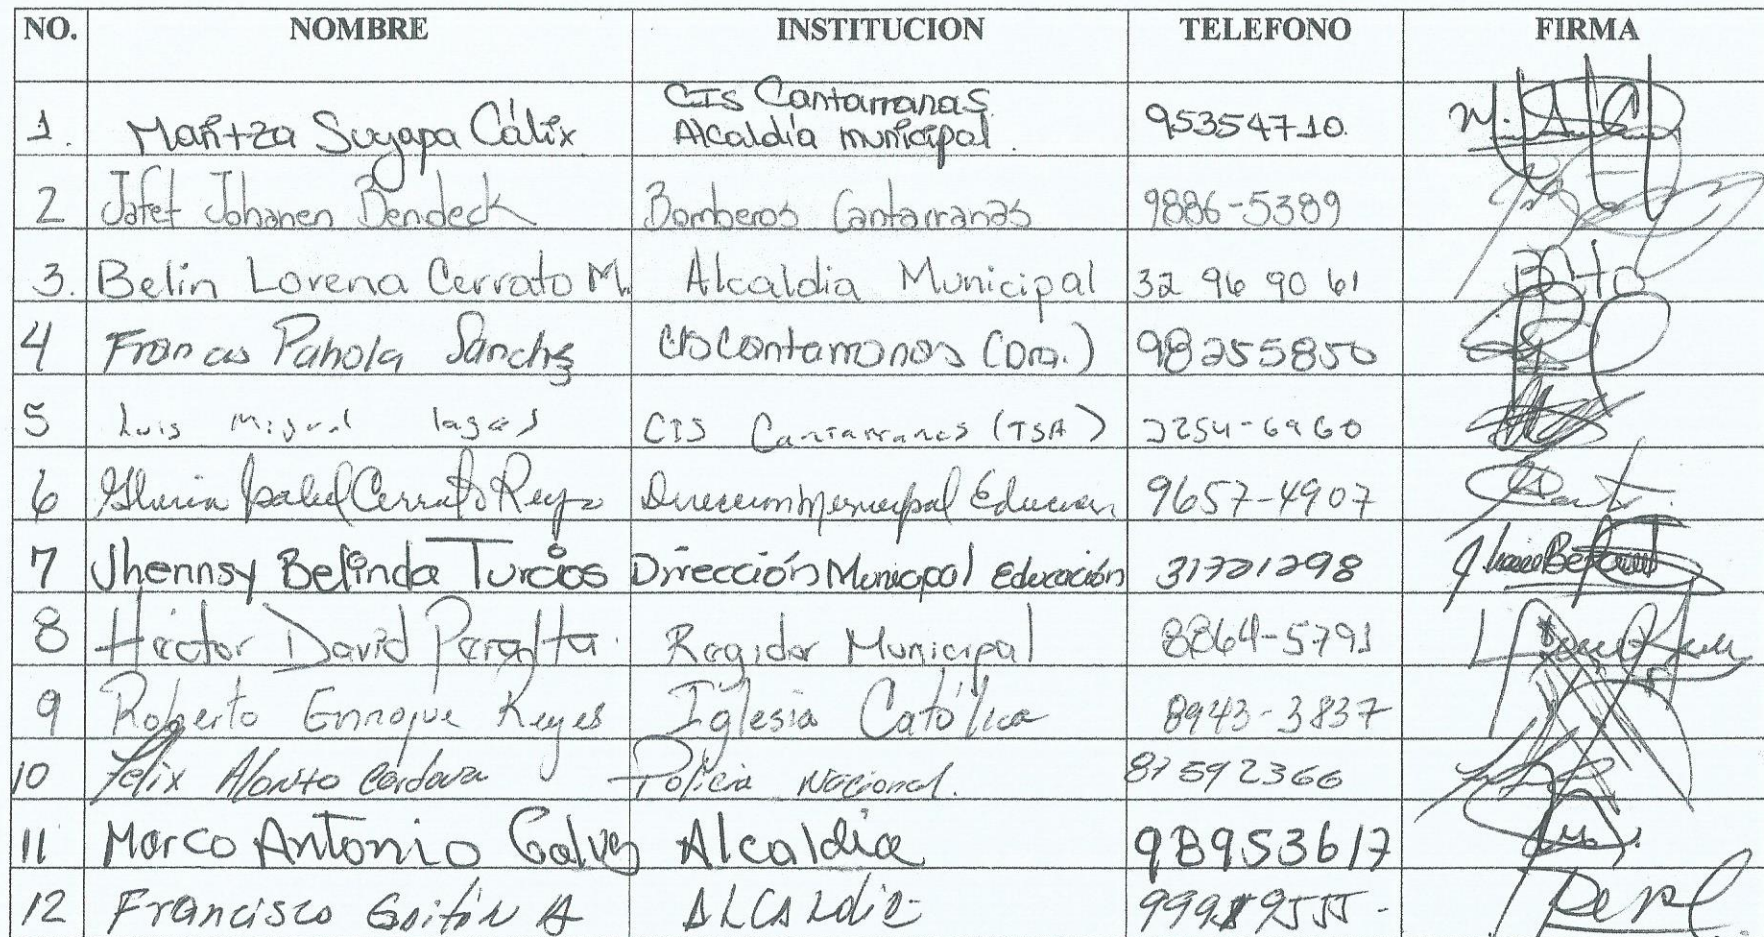 NO. NOMBRE INSTITUCION TELEFONO FIRMA
1. Maritza Suyapa Cálix CIS Cantarranas Alcaldía municipal. 95354710.
2 Jafet Johanen Bendeck Bomberos Cantarranas 9886-5389
3. Belin Lorena Cerrato M. Alcaldia Municipal 32 96 90 61
4 Francis Pahola Sanchz CIS Cantarranas (Dra.) 98255850
5 Luis Miguel lagos CIS Cantarranas (TSA) 3254-6960
6 Gloria Isabel Cerrato Reyes Direccion Municipal Educacion 9657-4907
7 Jhennsy Belinda Turcios Dirección Municipal Educación 31721298
8 Hector David Peralta. Regidor Municipal 8864-5791
9 Roberto Enrrique Reyes Iglesia Católica 8943-3837
10 Felix Alonso Córdova Policia Nacional. 87592366
11 Marco Antonio Galvez Alcaldia 98953617
12 Francisco A ALCALdia